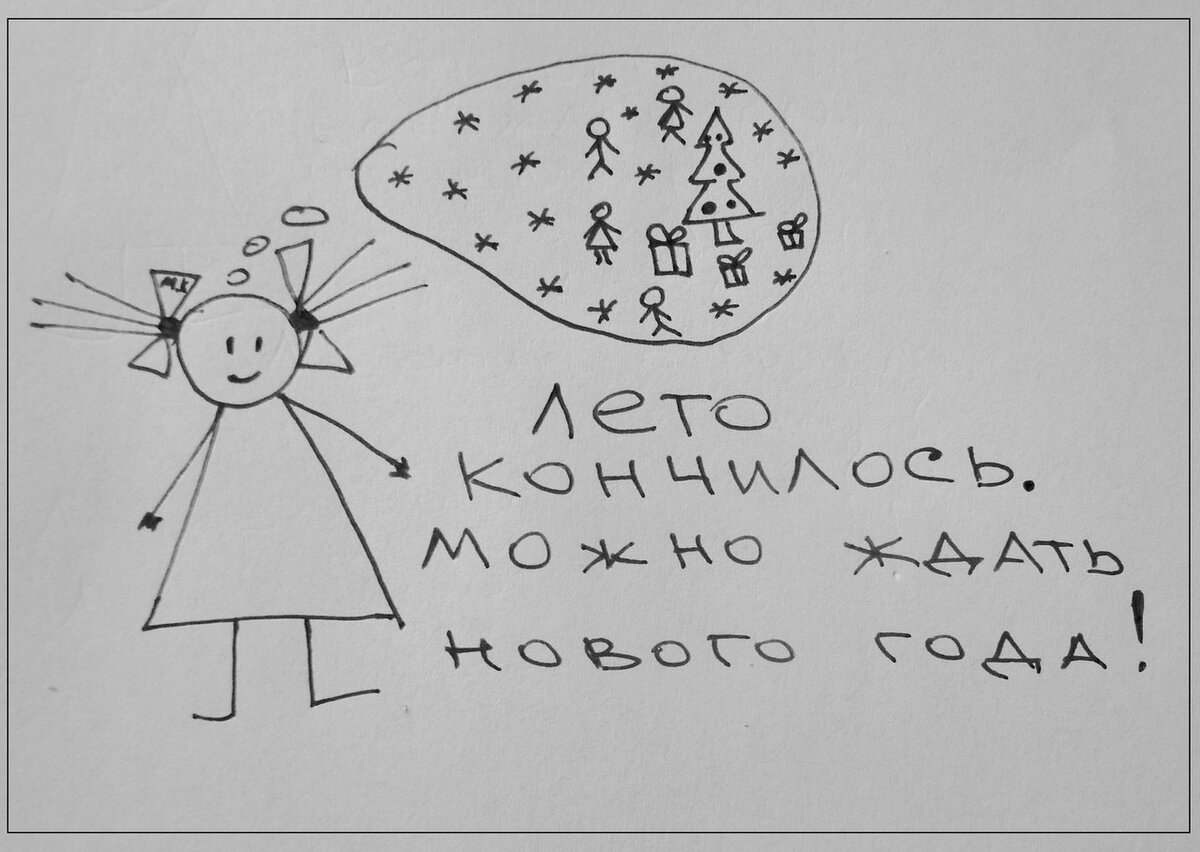 ЛЕТО
КОНЧИЛОСЬ.
МОЖНО ЖДАТЬ
НОВОГО ГОДА!